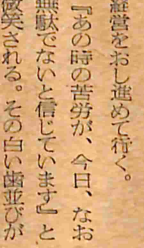 経営をおし進めて行く。
『あの時の苦労が、今日、なお
無駄でないと信じています』と
微笑される。その白い歯並びが